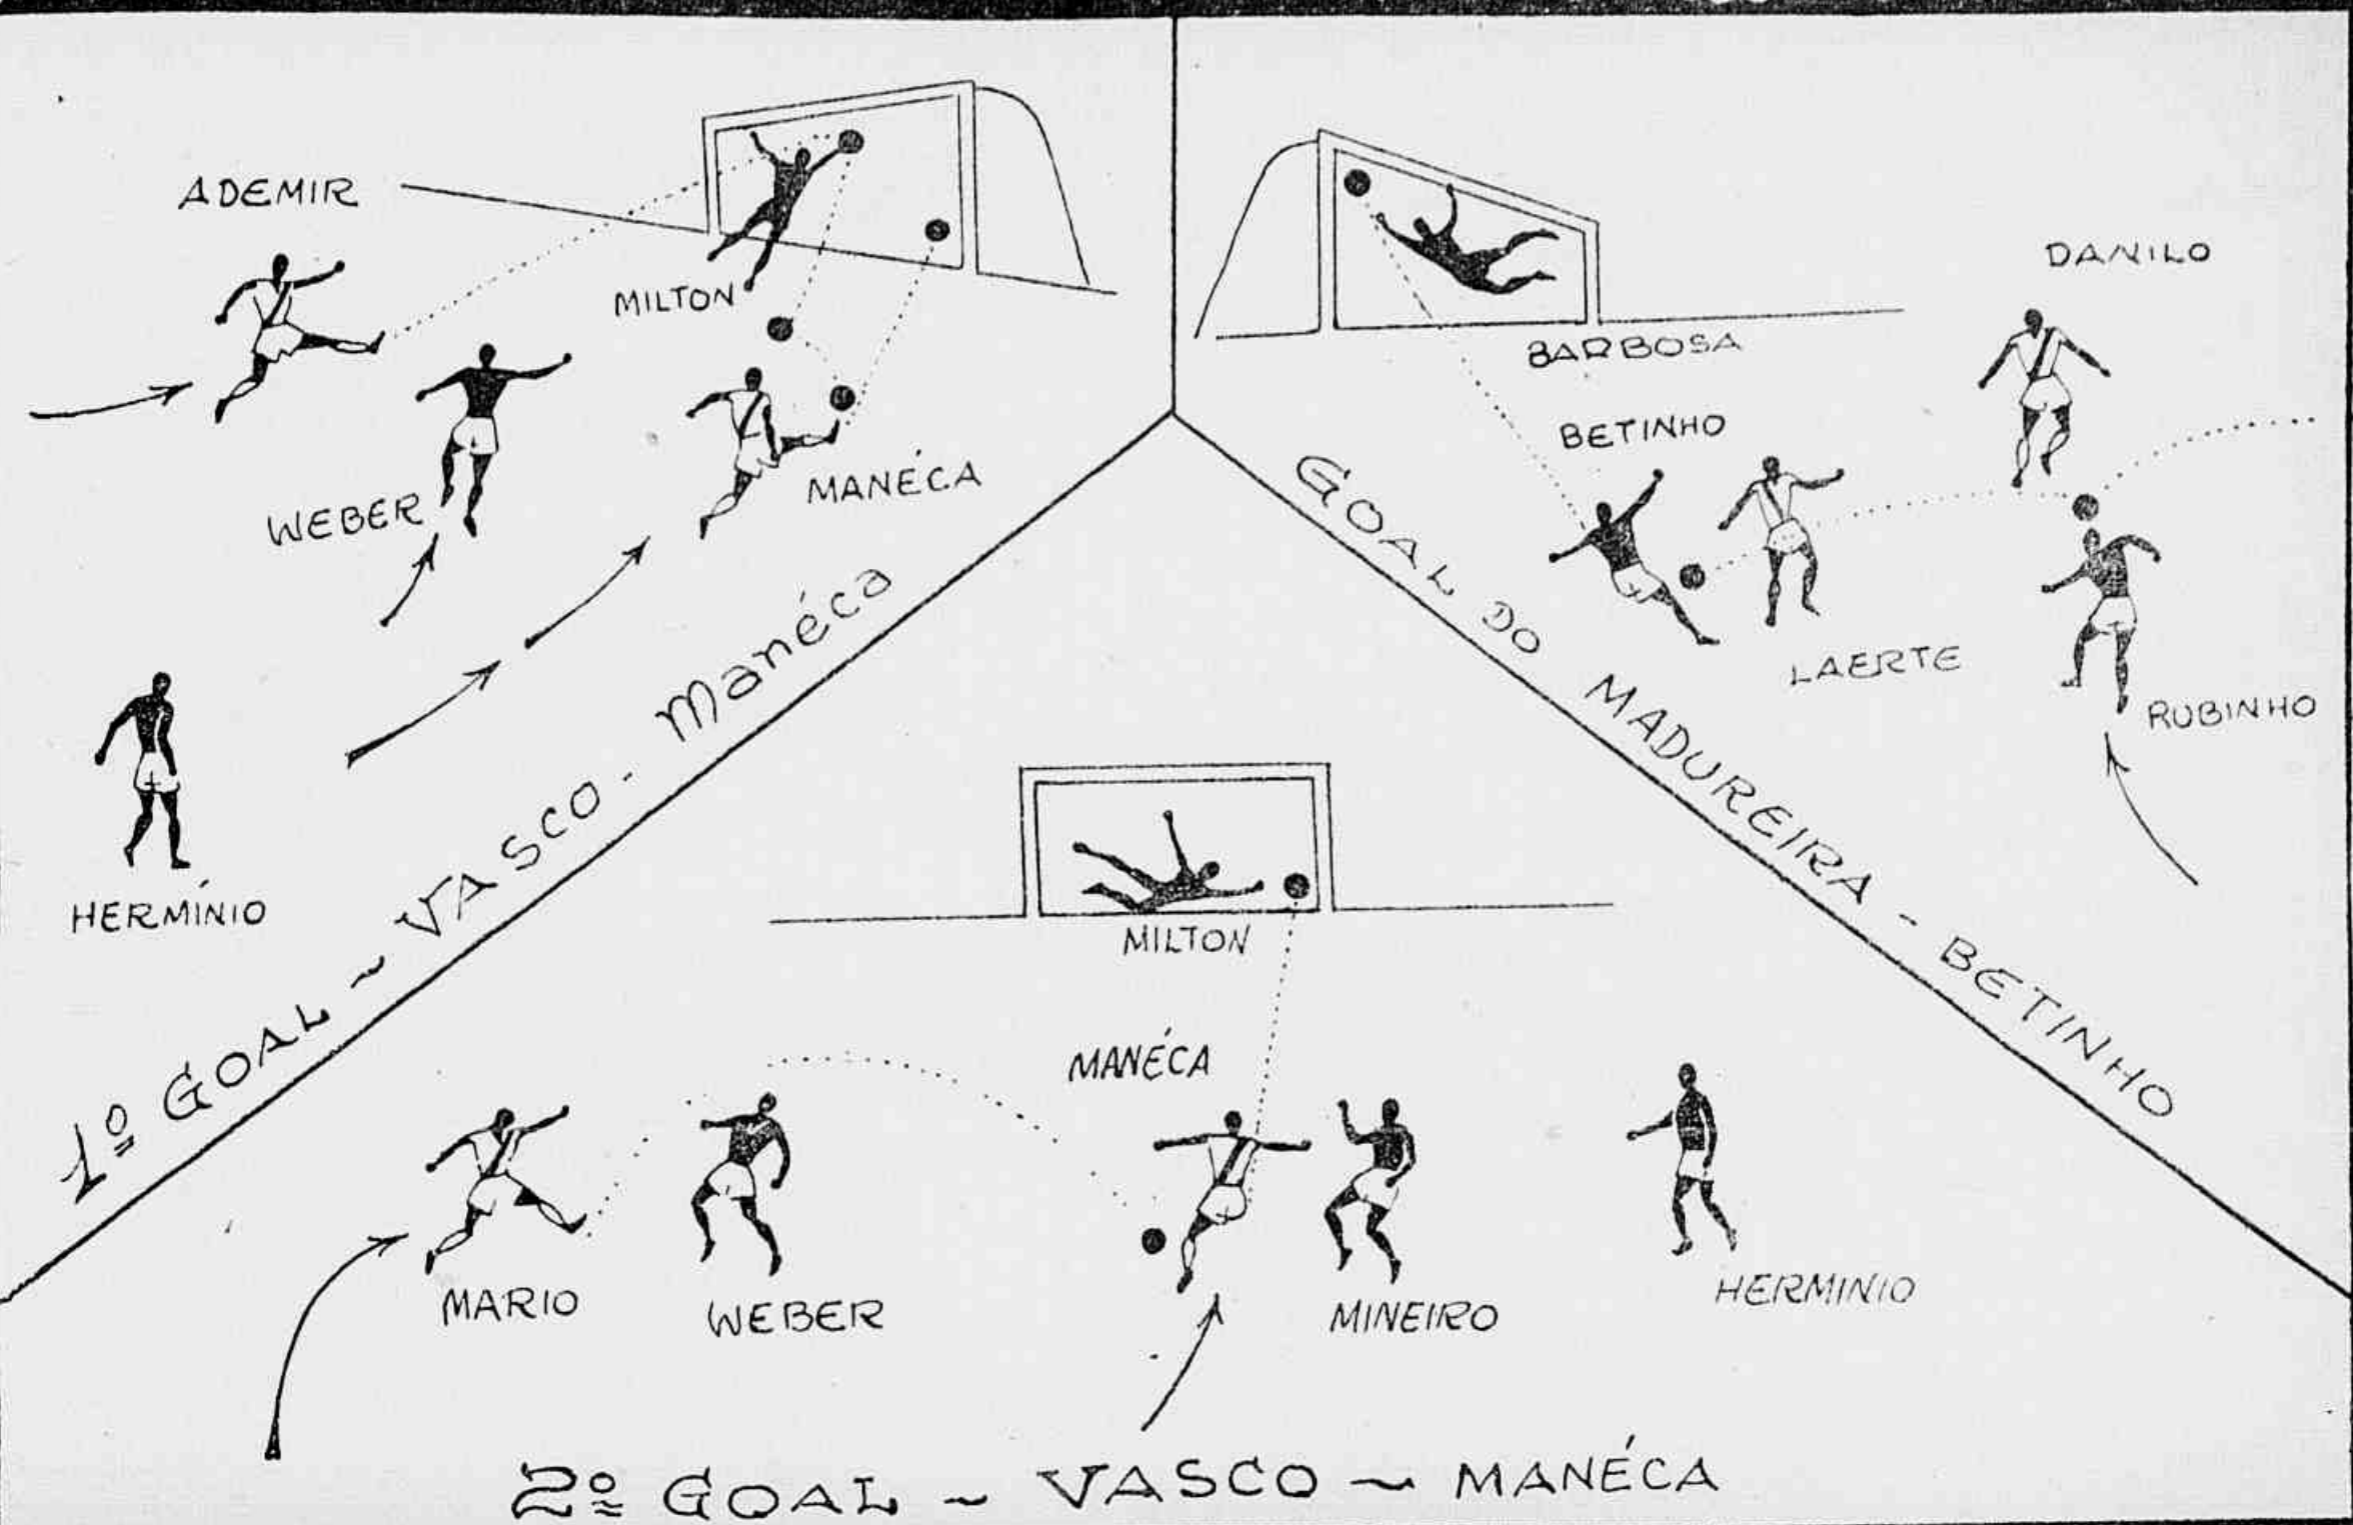 ADEMIR
MILTON
WEBER
MANÉCA
HERMÍNIO
1º GOAL ~ VASCO - Manéca
BARBOSA
DANILO
BETINHO
LAERTE
RUBINHO
GOAL DO MADUREIRA - BETINHO
MILTON
MANÉCA
MARIO
WEBER
MINEIRO
HERMINIO
2º GOAL ~ VASCO ~ MANÉCA